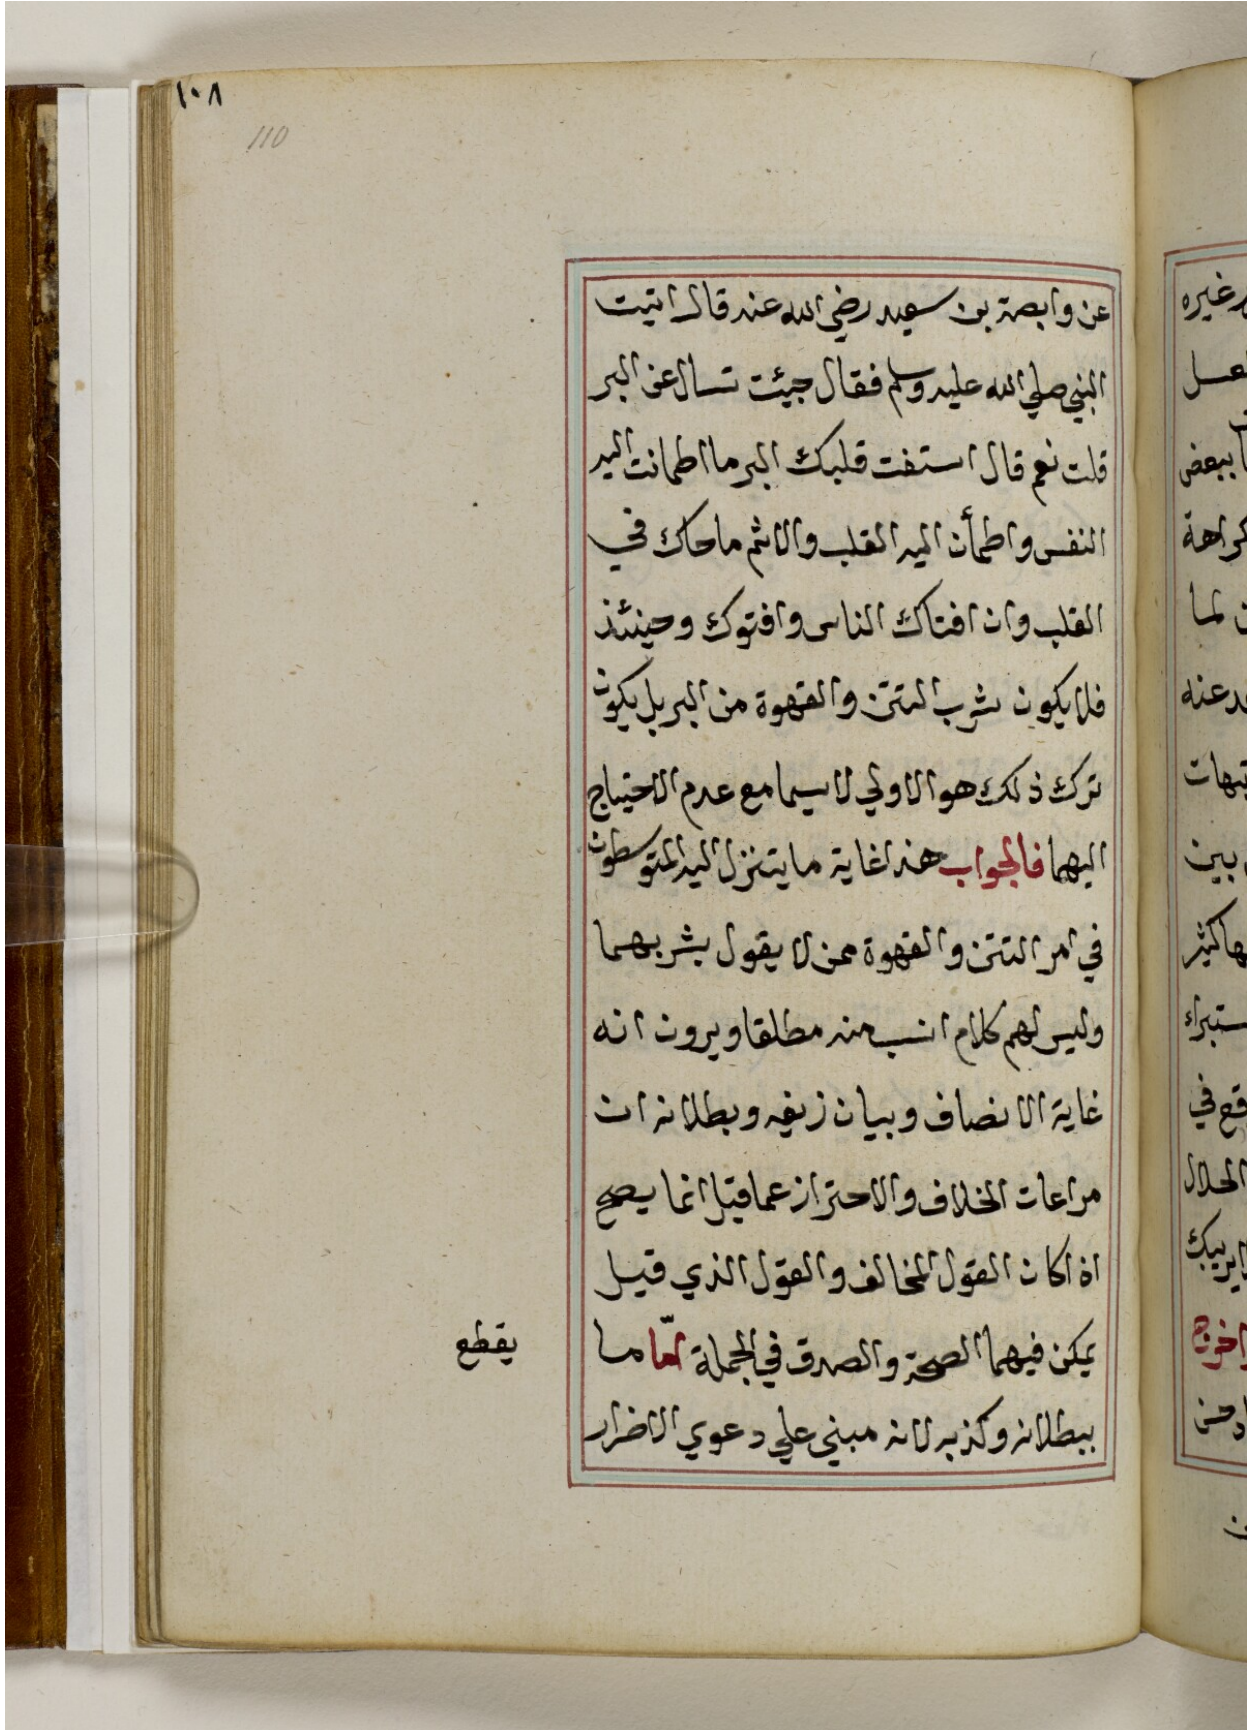 ١٠٨
110
عن وابصة بن سعيد رضي الله عنه قال اتيت
النبي صلي الله عليه وسلم فقال جيئت تسال عن البر
قلت نعم قال استفت قلبك البر ما اطمانت اليه
النفس واطمأن اليه القلب والاثم ما حاك في
القلب وان افتاك الناس وافتوك وحينئذ
فلا يكون شرب التتن والقهوة من البر بل يكون
ترك ذلك هو الاولي لا سيما مع عدم الاحتياج
اليهما فالجواب هذا غاية ما يتنزل اليه المتوسطون
في امر التتن والقهوة ممن لا يقول بشربهما
وليس لهم كلام انسب منه مطلقا ويرون انه
غاية الانصاف وبيان زيفه وبطلانه ان
مراعات الخلاف والاحتراز عما قيل انما يصح
اذا كان القول المخالف والقول الذي قيل
يمكن فيهما الصحة والصدق في الجملة امّا ما
يقطع
ببطلانه وكذبه لانه مبني علي دعوي الاضرار
غيره
ببعض
كراهة
لما
عنه
بين
كثير
في
الحلال